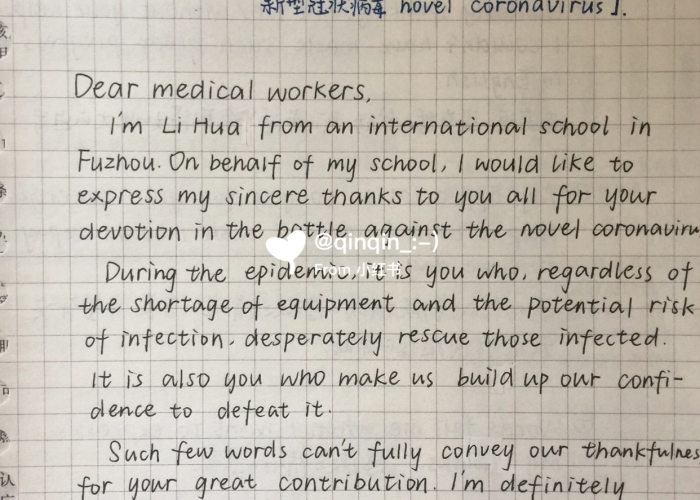 新型冠状病毒 novel coronavirus].
Dear medical workers,
I'm Li Hua from an international school in
Fuzhou. On behalf of my school, I would like to
express my sincere thanks to you all for your
devotion in the battle against the novel coronaviru
@qinqin_:-)
During the epidemic, it is you who, regardless of
From 小红书
the shortage of equipment and the potential risk
of infection, desperately rescue those infected.
It is also you who make us build up our confi-
dence to defeat it.
Such few words can't fully convey our thankfulnes
for your great contribution. I'm definitely